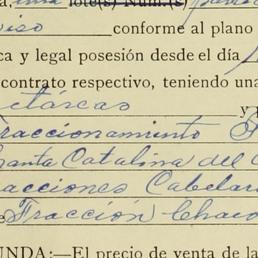 una lote(s) Núm.(s)
iso conforme al plano
ca y legal posesión desde el día
contrato respectivo, teniendo una
ctáreas y
raccionamiento
Santa Catalina del
acciones
e Fracción
UNDA:—El precio de venta de la